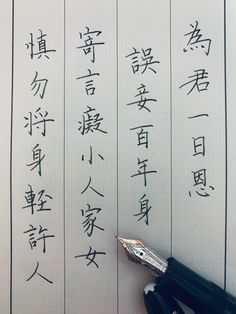 為君一日恩
誤妾百年身
寄言癡小人家女
慎勿將身輕許人